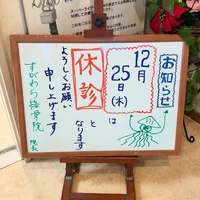 お知らせ
12月
25日(木)は
休診
となります
よろしくお願い
申し上げます
すがわら接骨院
院長